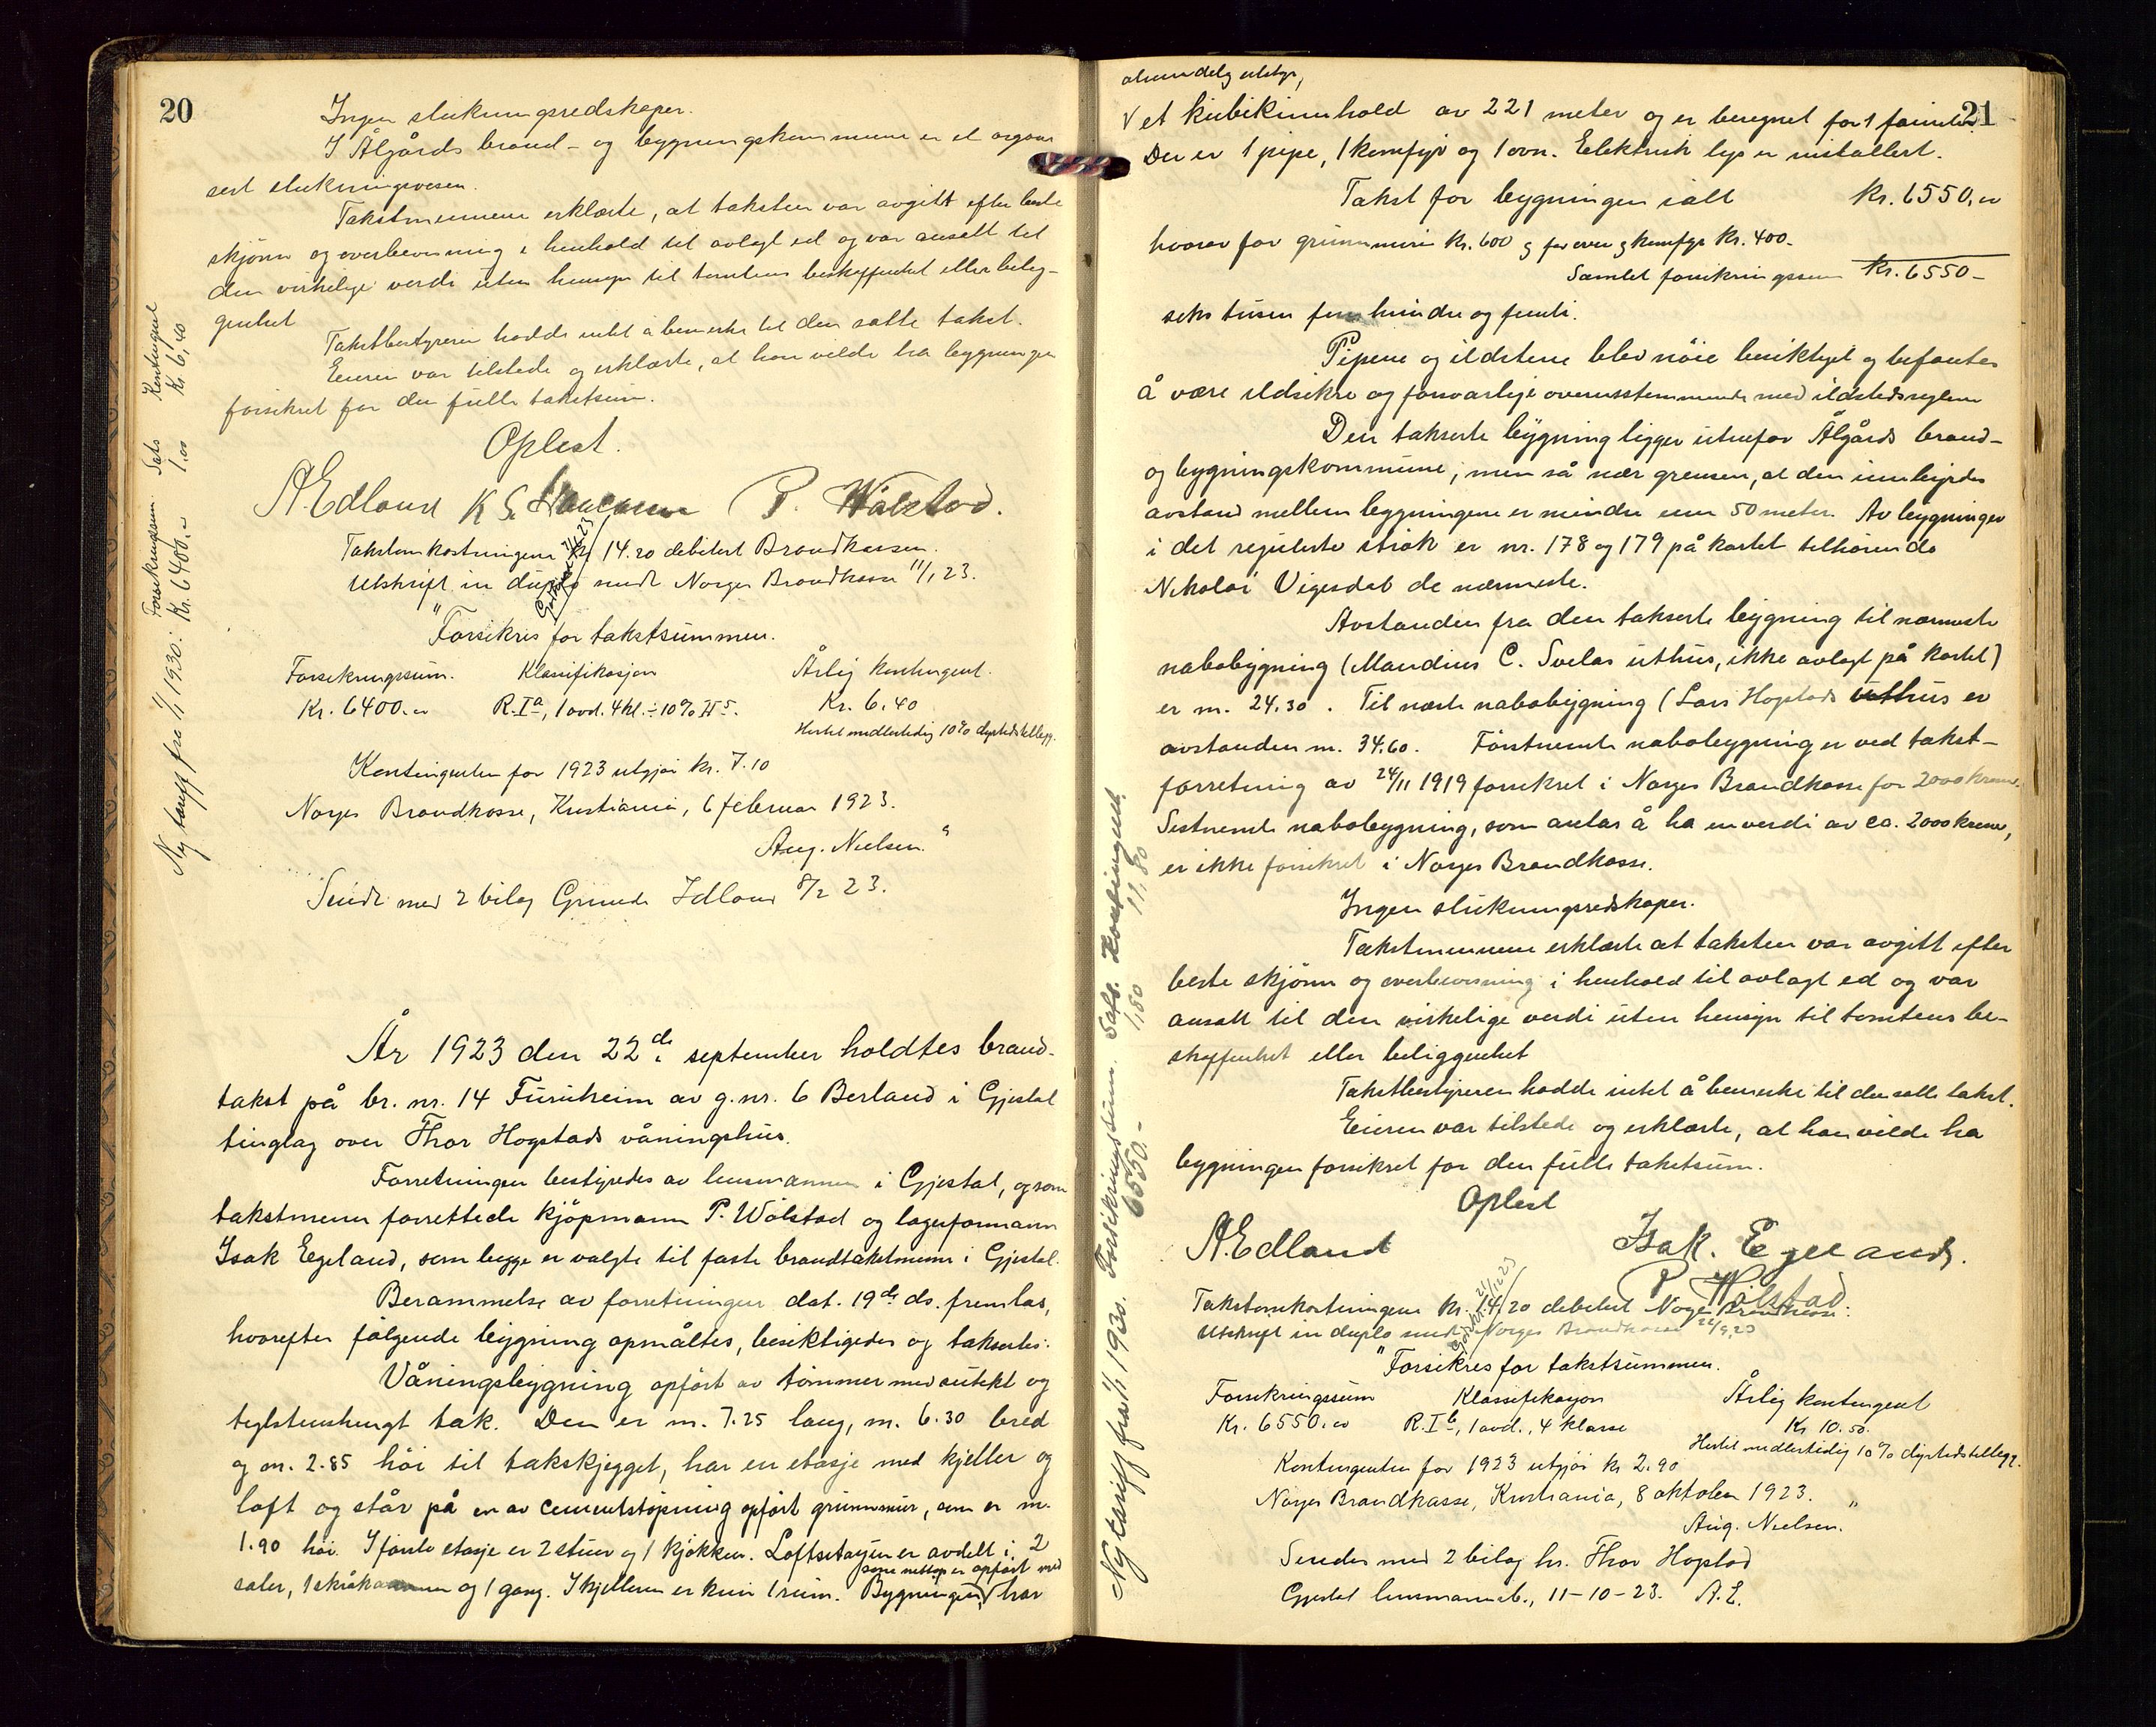 20
Ingen slukningsredskaper.
I Ålgårds brand- og bygningskommune er et organi
sert slukningsvesen.
Takstmennene erklærte, at taksten var avgitt efter beste
skjønn og overbevisning i henhold til avlagt ed og var ansatt til
den virkelige verdi uten hensyn til tomtens beskaffenhet eller belig-
genhet
Takstbestyreren hadde intet å bemerke til den satte takst.
Eieren var tilstede og erklærte, at han vilde ha bygningen
forsikret for den fulle takstsum.
Oplest.
A. Edland K S. P. Wålstad.
Takstomkostningene kr 14.20 debitert Brandkassen.
Utskrift in duplo sendt Norges Brandkasse 11/1 23.
"Forsikres for takstsummen.
Forsikringssum. Klassifikasjon Årlig kontingent.
Kr. 6400.00 R.Iª, 1 avd. 4 kl. ÷ 10% H⁵. Kr. 6.40
Hertil midlertidig 10% dyrtidstillegg.
Kontingenten for 1923 utgjør kr. 7.10
Norges Brandkasse, Kristiania, 6 februar 1923.
Aug. Nielsen."
Sendt med 2 bilag Edland 8/2 23.
Ny tariff fra 1/1 1930. Forsikringssum Kr. 6400.00 Sats 1,00 Kontingent Kr 6,40
År 1923 den 22de september holdtes brand-
takst på br. nr. 14 Furuheim av g. nr. 6 Berland i Gjestal
tinglag over Thor Hogstads våningshus.
Forretningen bestyredes av lensmannen i Gjestal, og som
takstmenn forrettede kjøpmann P. Wålstad og lagerformann
Isak Egeland, som begge er valgte til faste brandtakstmenn i Gjestal.
Berammelse av forretningen dat. 19de ds. fremlas,
hvorefter følgende bygning opmåltes, besiktigedes og takseres:
Våningsbygning opført av tømmer med sutekt og
teglstenshengt tak. Den er m. 7.25 lang, m. 6.30 bred
og m. 2.85 høi til takskjegget, har en etasje med kjeller og
loft og står på en av cementstøpning opført grunnmur, som er m.
1.90 høi. I første etasje er 2 stuer og 1 kjøkken. Loftsetasjen er avdelt i 2
saler, 1 skråkammer og 1 gang. I kjelleren er kun 1 rum. Bygningen √ har
som nettop er opført med
21
almindelig utstyr,
√ et kubikinnhold av 221 meter og er beregnet for 1 familie.
Der er 1 pipe, 1 komfyr og 1 ovn. Elektrisk lys er installert.
Takst for bygningen ialt kr. 6550,00
hvorav for grunnmur kr. 600 og for ovn og komfyr kr. 400.
Samlet forsikringssum kr. 6550-
seks tusen fem hundre og femti.
Pipene og ildstene blev nøie besiktiget og befantes
å være ildsikre og forsvarlige overensstemmende med ildstedsreglene
Den takserte bygning ligger utenfor Ålgårds brand-
og bygningskommune, men så nær grensen, at den innbyrdes
avstand mellem bygningene er mindre enn 50 meter. Av bygninger
i det regulerte strøk er nr. 178 og 179 på kartet tilhørende
Nikolai Vigesdal de nærmeste.
Avstanden fra den takserte bygning til nærmeste
nabobygning (Maudius C. Svelas uthus, ikke avlagt på kartet)
er m. 24.30. Til næste nabobygning (Lars Hogstads uthus er
avstanden m. 34.60. Førstnevnte nabobygning er ved takst-
forretning av 24/11 1919 forsikret i Norges Brandkasse for 2000 kroner.
Sistnevnte nabobygning, som antas å ha en verdi av ca. 2000 kroner,
er ikke forsikret i Norges Brandkasse.
Ingen slukningsredskaper.
Takstmennene erklærte at taksten var avgitt efter
beste skjønn og overbevisning i henhold til avlagt ed og var
ansatt til den virkelige verdi uten hensyn til tomtens be-
skaffenhet eller beliggenhet
Takstbestyreren hadde intet å bemerke til den satte takst.
Eieren var tilstede og erklærte, at han vilde ha
bygningen forsikret for den fulle takstsum.
Oplest
A. Edland Isak. Egeland.
P. Wålstad
Takstomkostningene kr. 14.20 debitert Norges Brandkasse.
Utskrift in duplo sendt Norges Brandkasse 22/9 23
"Forsikres for takstsummen.
Forsikringssum Klassifikasjon Årlig kontingent
Kr. 6550.00 R.Iᵇ, 1 avd., 4 klasse Kr 10.50.
Hertil midlertidig 10% dyrtidstillegg.
Kontingenten for 1923 utgjør kr 2.90
Norges Brandkasse, Kristiania, 8 oktober 1923.
Aug. Nielsen."
Sendes med 2 bilag hr. Thor Hogstad
Gjestal lensmannsk., 11-10-23. A. E.
Ny tariff fra 1/1 1930. Forsikringssum. 6550.- Sats. 1,80 Kontingent 11,80